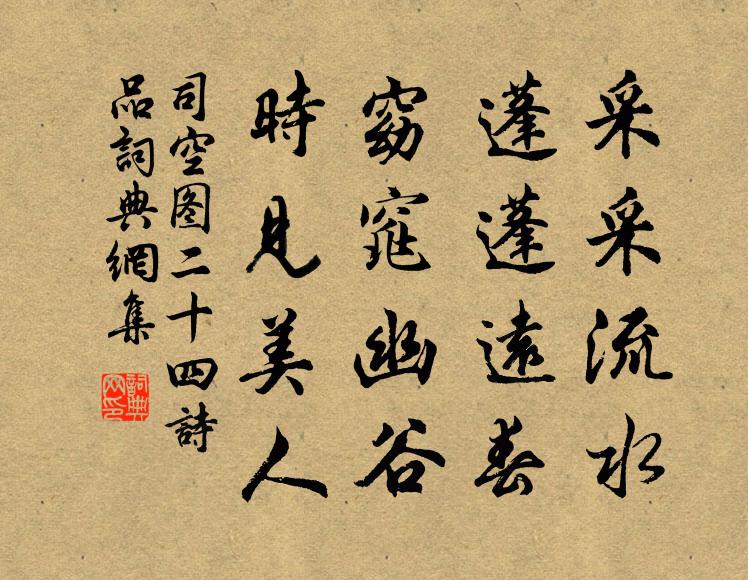 采采流水
蓬蓬遠春
窈窕幽谷
時見美人
司空图二十四詩
品詞典網集
詞典網印